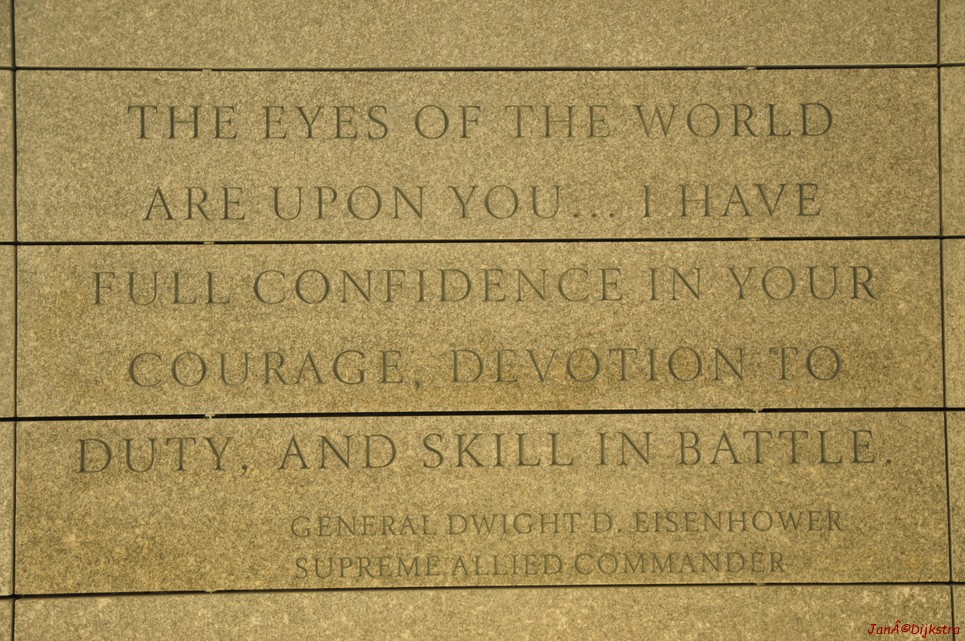 THE EYES OF THE WORLD
ARE UPON YOU... I HAVE
FULL CONFIDENCE IN YOUR
COURAGE, DEVOTION TO
DUTY, AND SKILL IN BATTLE.
GENERAL DWIGHT D. EISENHOWER
SUPREME ALLIED COMMANDER
JanÂ©Dijkstra